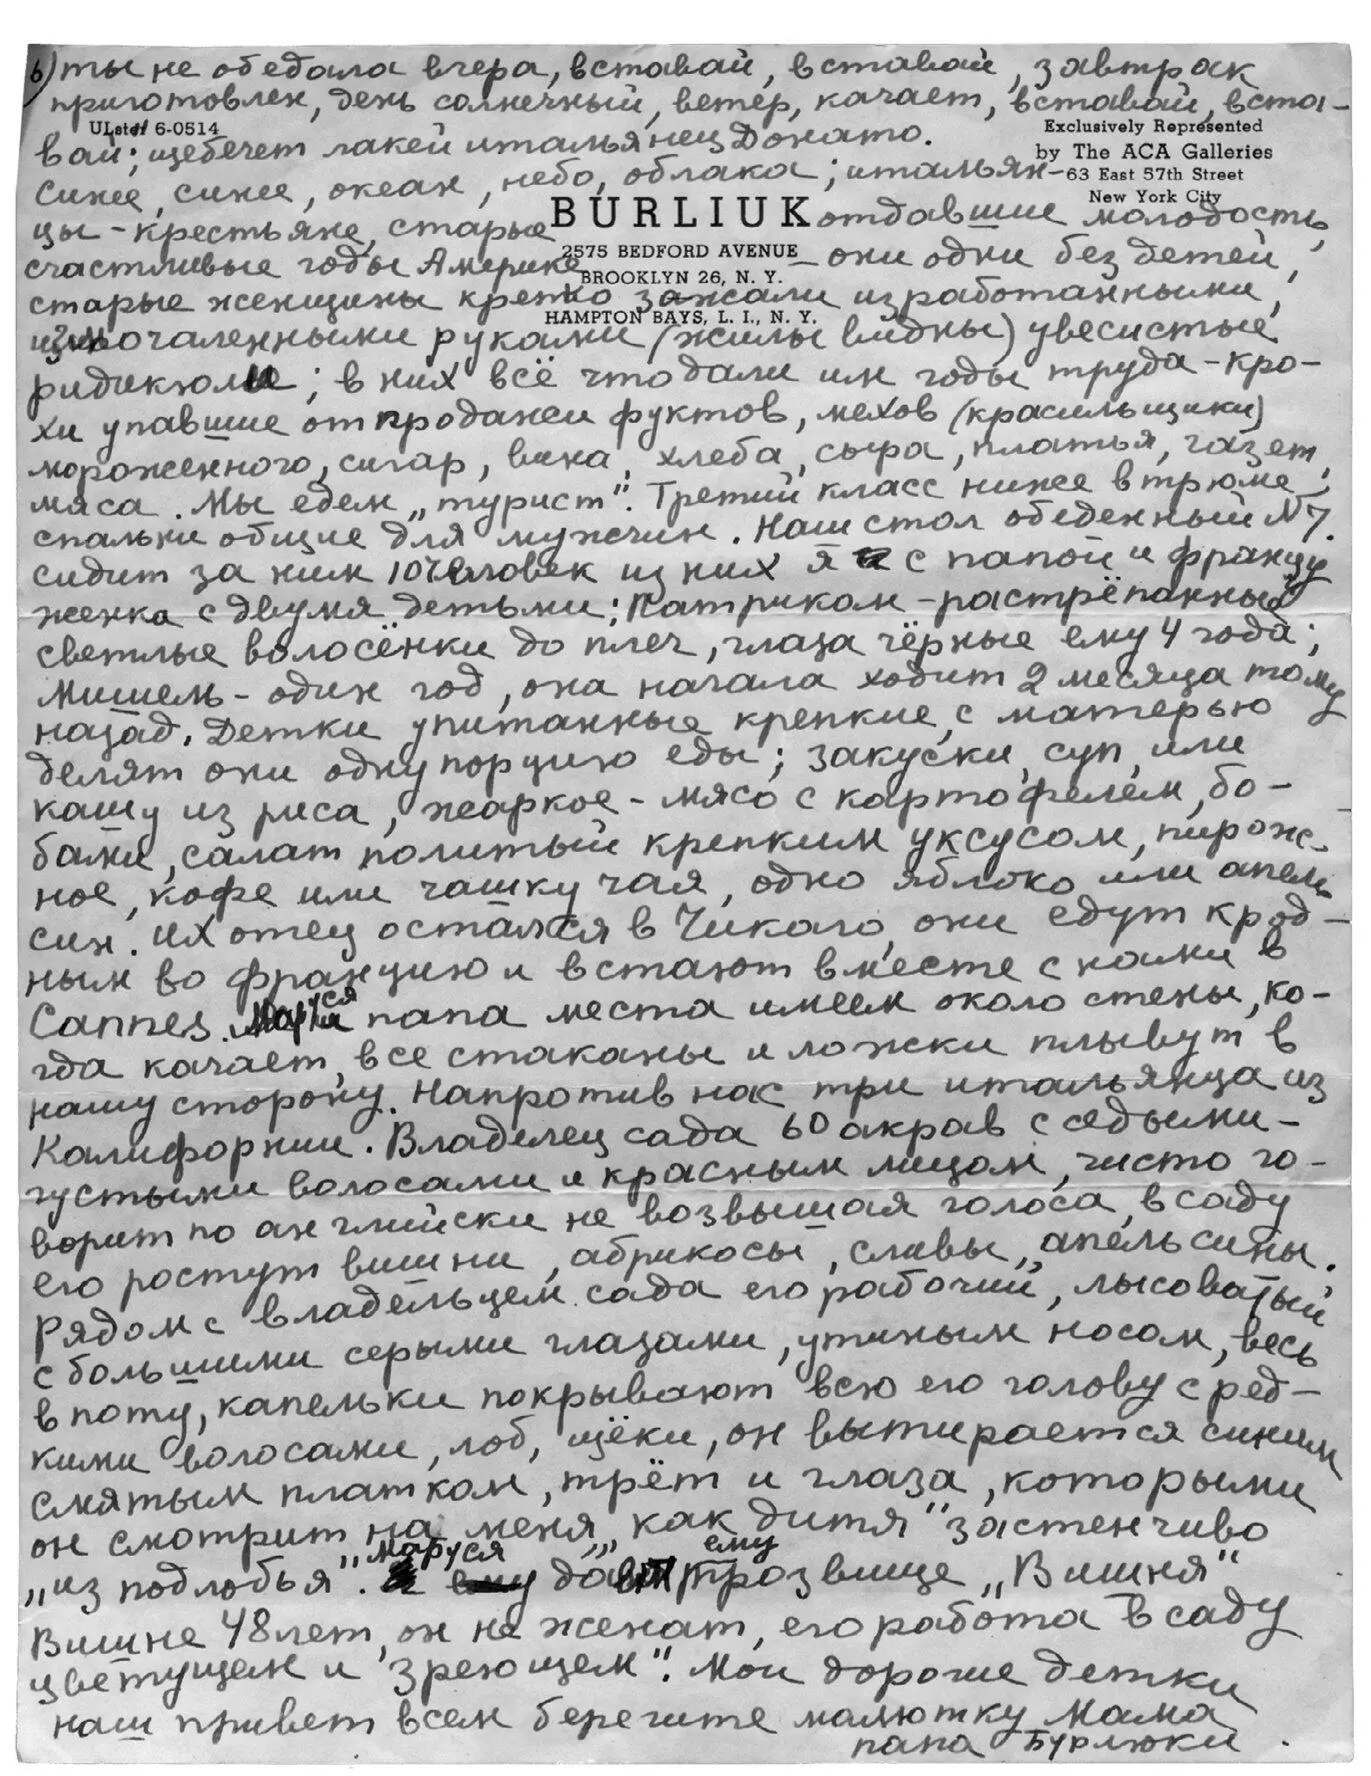 6) ты не обедала вчера, вставай, вставай, завтрак
приготовлен, день солнечный, ветер, качает, вставай, вста-
ULster 6-0514
Exclusively Represented
вай; щебечет лакей итальянец Донато.
by The ACA Galleries
63 East 57th Street
New York City
Синее, синее, океан, небо, облака; итальян-
BURLIUK
цы-крестьяне, старые отдавшие молодость,
2575 BEDFORD AVENUE
счастливые годы Америке — они одни без детей,
BROOKLYN 26, N. Y.
старые женщины крепко зажали изработанными,
HAMPTON BAYS, L. I., N. Y.
измочаленными руками (жилы видны) увесистые
ридикюли; в них всё что дали им годы труда-кро-
хи упавшие от продажи фуктов, мехов (красильщики)
мороженного, сигар, вина, хлеба, сыра, платья, газет,
мяса. Мы едем „турист". Третий класс ниже в трюме,
спальни общие для мужчин. Наш стол обеденный N7.
сидит за ним 10 человек из них я с папой и францу
женка с двумя детьми; Патриком-растрёпанный
светлые волосёнки до плеч, глаза чёрные ему 4 года;
Мишель-один год, она начала ходит 2 месяца тому
назад. Детки упитанные крепкие, с матерью
делят они одну порцию еды; закуски, суп, или
кашу из риса, жаркое-мясо с картофелем, бо-
бами, салат политый крепким уксусом, пирож-
ное, кофе или чашку чая, одно яблоко или апель
син. Их отец остался в Чикаго, они едут к род-
ным во францию и встают вместе с нами в
Cannes. Маруся папа места имеем около стены, ко-
гда качает, все стаканы и ложки плывут в
нашу сторону. Напротив нас три итальянца из
Калифорнии. Владелец сада 60 акров с седыми-
густыми волосами и красным лицом, чисто го-
ворит по английски не возвышая голоса, в саду
его ростут вишни, абрикосы, сливы, апельсины.
Рядом с владельцем сада его рабочий, лысоватый
с большими серыми глазами, утиным носом, весь
в поту, капельки покрывают всю его голову с ред-
кими волосами, лоб, щёки, он вытирается синим
смятым платком, трёт и глаза, которыми
он смотрит на меня „как дитя" застенчиво
„из подлобья". „Маруся ему прозвище „Вишня"
Вишне 48 лет, он не женат, его работа в саду
цветущем и "зреющем". Мои дорогие детки
наш привет всем берегите малютку Мама
папа Бурлюки.